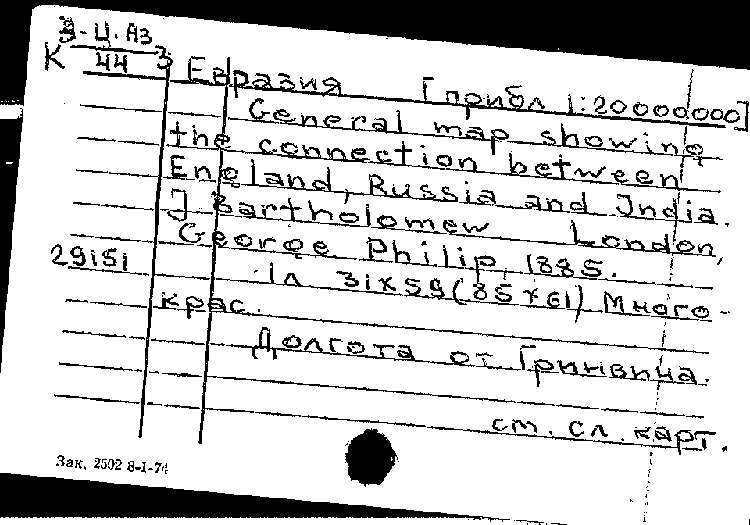 З-Ц.Аз
К 44 3
Евразия [прибл 1:20000000]
General map showing
the connection between
England, Russia and India.
J Bartholomew London,
George Philip, 1885.
29151
1л 31x59(85x61) Много-
крас.
Долгота от Гринвича.
см. сл. карт.
Зак. 2502 8-1-74